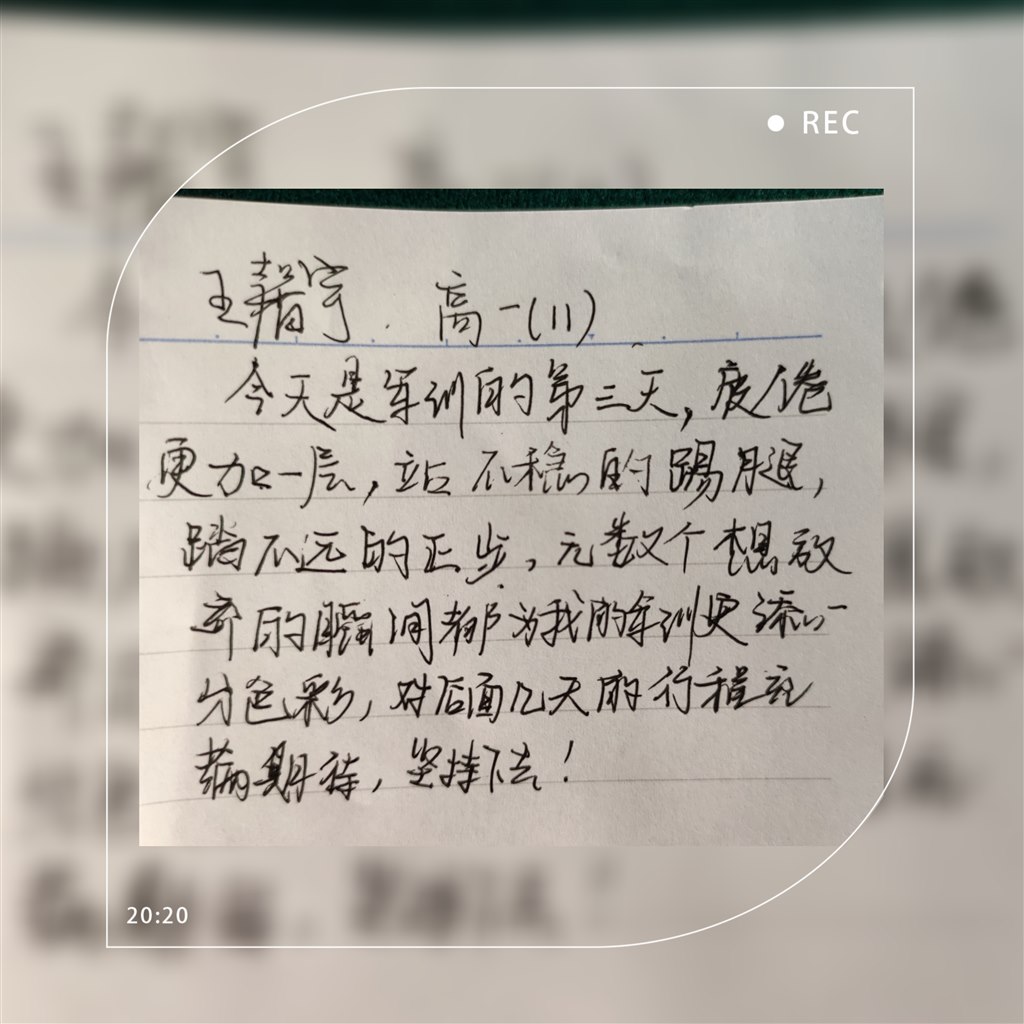 REC
王馨宇 高一(11)
今天是军训的第三天，疲倦
更加一层，站不稳的踢腿，
踏不远的正步，无数个想放
弃的瞬间都为我的军训更添一
分色彩，对后面几天的行程充
满期待，坚持下去！
20:20